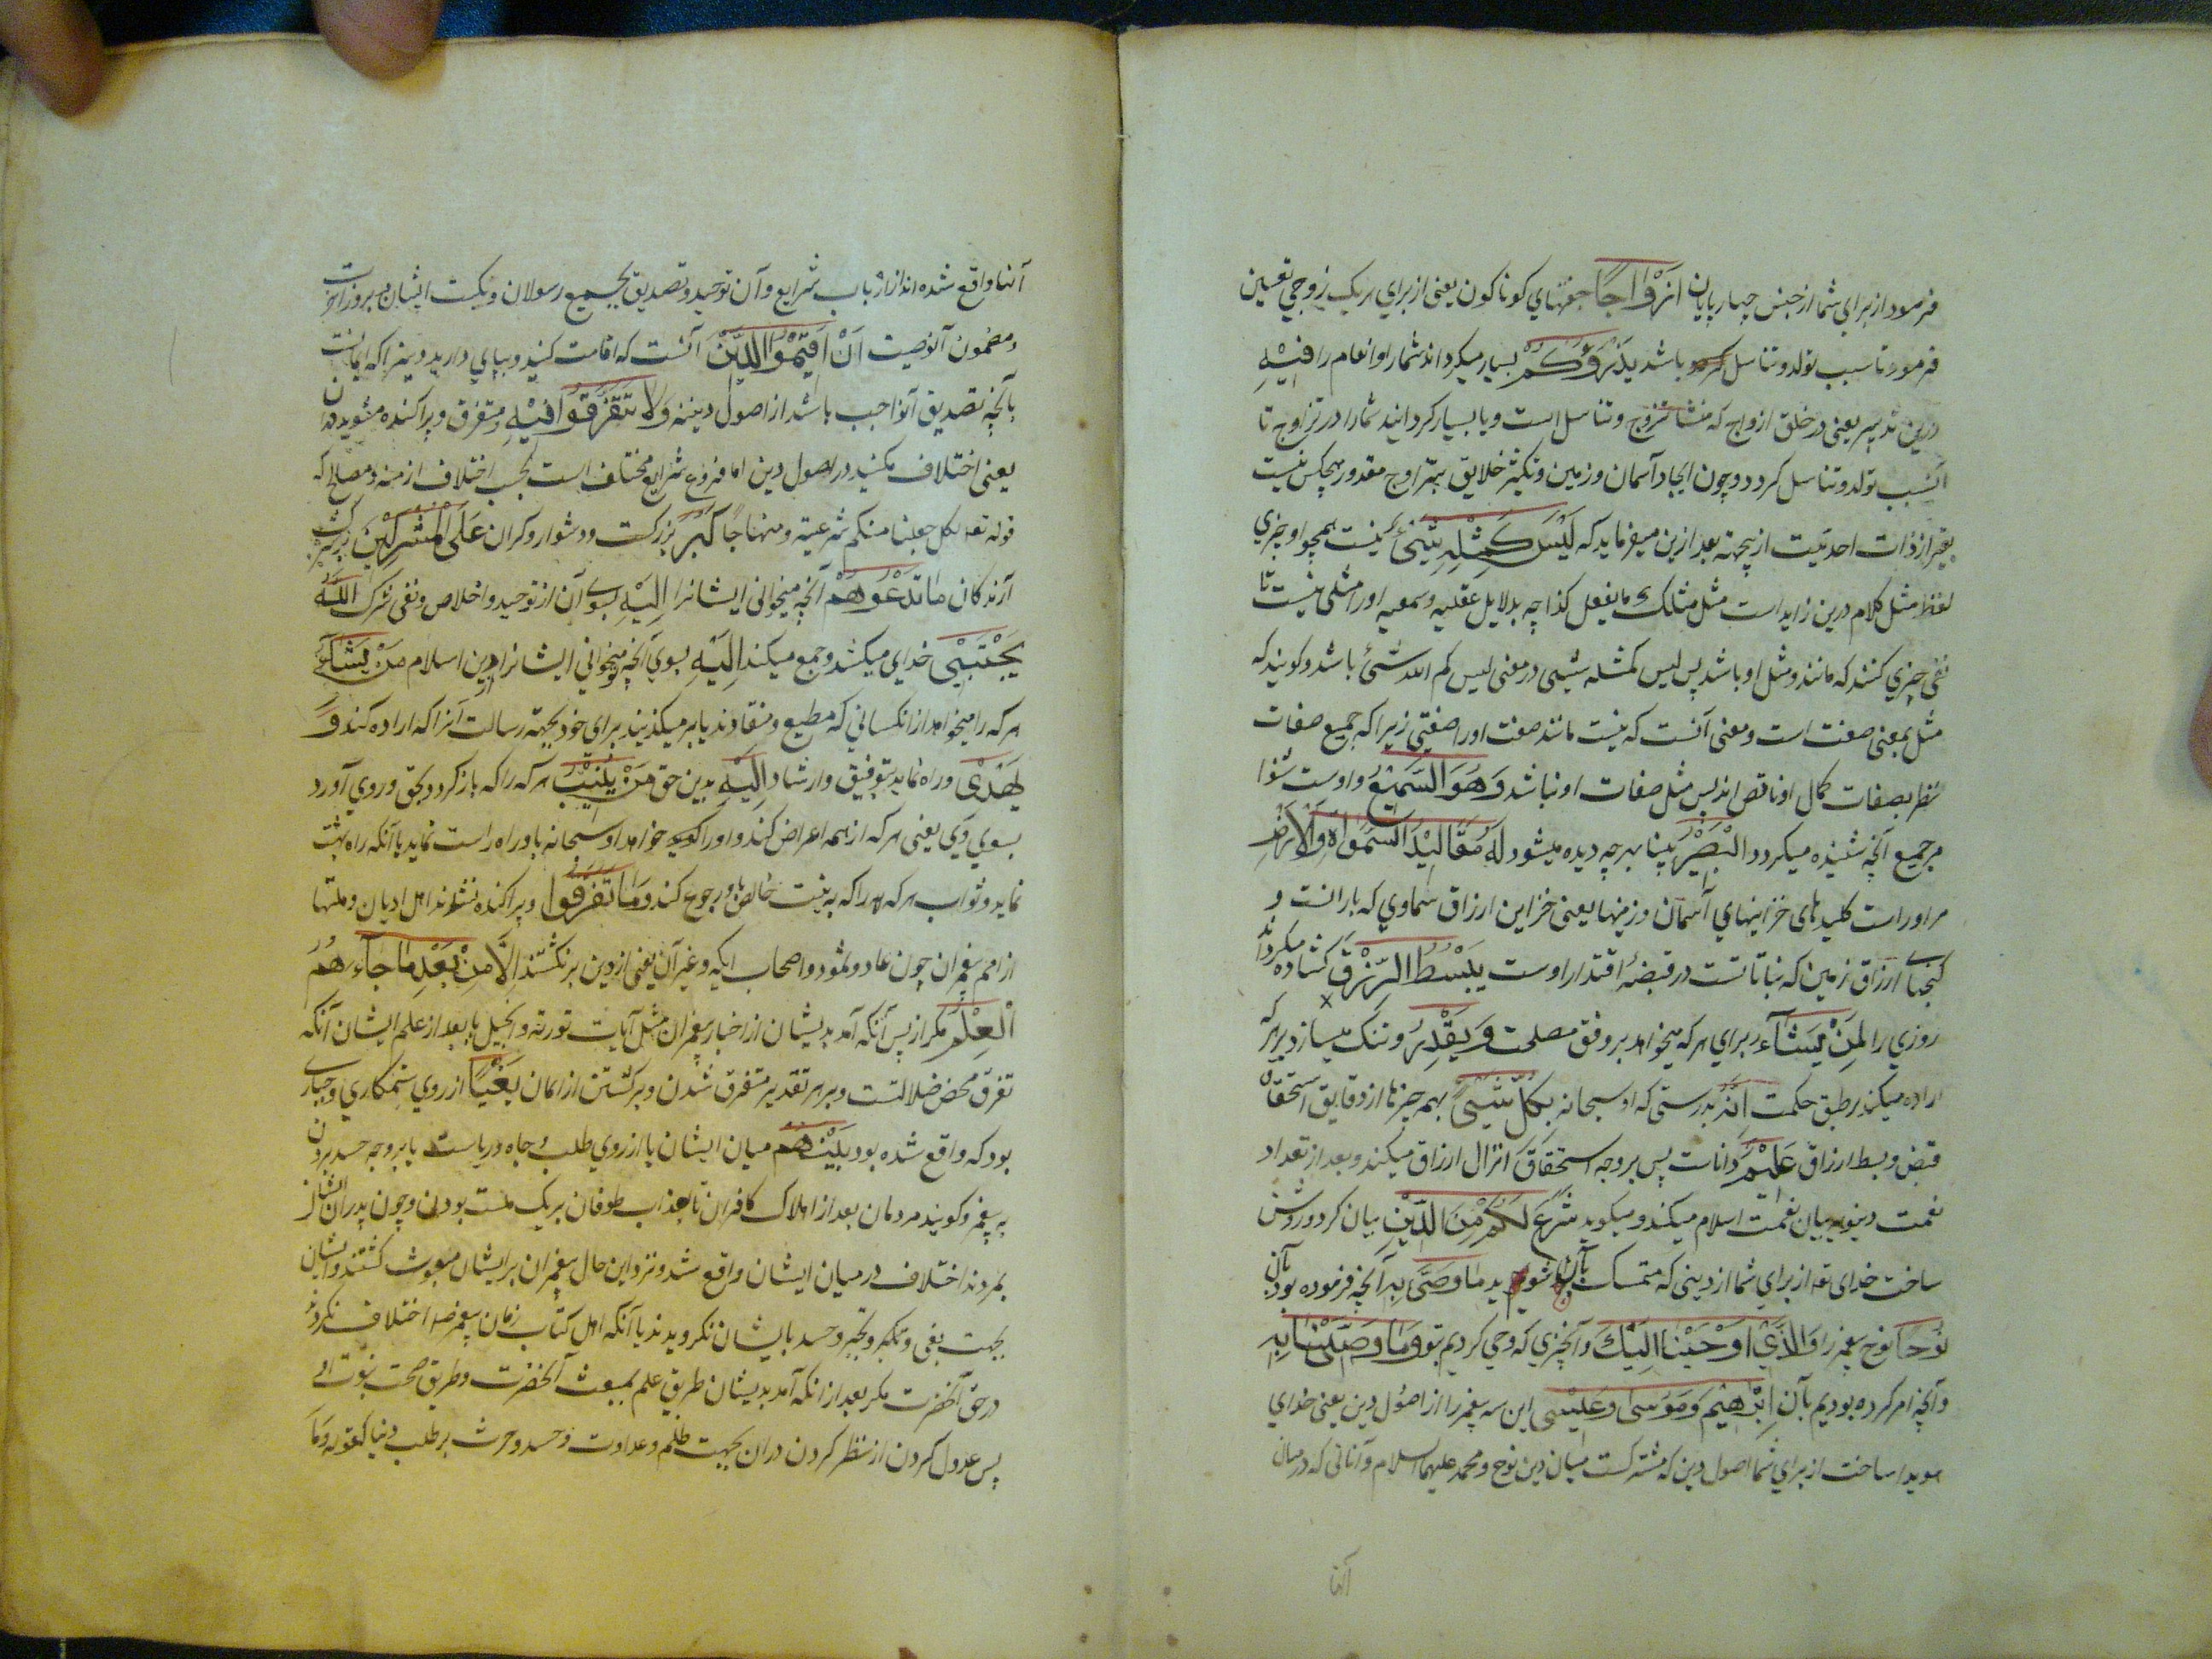 فرمود از براي شما از جنس چهارپایان ازواجا جفتهاي کوناکون یعنی از براي هریک زوجي تعیین
فرمود تا سبب تولد و تناسل باشد یذرؤکم بسیار میکرداند شما را و انعام را فیه
درین تدبیر یعنی در خلق ازواج که منشا تزوج و تناسل است و یا بسیار کرداند شما را در تزاوج تا
سبب تولد و تناسل کردد و چون ایجاد آسمان و زمین و تکثیر خلایق بتزاوج مقدور هیچکس نیست
بغیر از ذات احدیت ازینجهة بعد ازین میفرماید که لیس کمثله شئ نیست همچو او چیزي
لفظ مثل کلام درین زاید است مثل مثلک ما یفعل کذا چه بدلایل عقلیه و سمعیه او را مثلی نیست تا
نفی چیزي کنند که مانند و مثل او باشد پس لیس کمثله شیئی در معنی لیس کم الله شئ باشد و کویند که
مثل بمعنی صفت است و معنی آنست که نیست مانند صفت او را صفتی زیرا که جمیع صفات
نظر بصفات کمال او ناقص اند پس مثل صفات او نباشد و هو السمیع و اوست شنوا
مر جمیع آنچه شنیده میکردد البصیر بینا بهرچه دیده میشود له مقالید السموات والارض
مر او راست کلیدهای خزاینهاي آسمان و زمینها یعنی خزاین ارزاق سماوي که بارانست و
کنجهاے ارزاق زمین که نباتاتست در قبضهٔ اقتدار اوست یبسط الرزق کشاده میکرداند
روزي را لمن یشاء براي هرکه میخواهد بر وفق مصلحت و یقدر و تنک میسازد بر هرکه
اراده میکند بر طبق حکمت انه بدرستی که او سبحانه بکل شئ بهمه چیزها از دقایق استحقاق
قبض و بسط ارزاق علیم داناست پس بر وجه استحقاق انزال ارزاق میکند و بعد از تعداد
نعمت دینویه بیان نعمت اسلام میکند و میکوید شرع لکم من الدین بیان کرد و روشن
ساخت خدای تعه از براي شما از دینی که متمسک بآن شوید ما وصی به آنچه فرموده بود بآن
نوحا نوح پیغمبر را والذی اوحینا الیک و آنچیزي که وحي کردیم بتو و ما وصینا به
و آنچه امر کرده بودیم بآن ابرهیم و موسی و عیسی این سه پیغمبر را از اصول دین یعنی خداي
هویدا ساخت از براي شما اصول دین که مشترکست میان دین نوح و محمد علیهما السلام و آنانی که درمیان
آنها
آنها واقع شده اند از ارباب شرایع و آن توحید و تصدیق بجمیع رسولان و بکتب ایشان و بروز آخرت
و مضمون آنوصیت ان اقیموا الدین آنست که اقامت کنید و بپاي دارید دینرا که ایمانست
بآنچه تصدیق آنواجب باشد از اصول دینیه ولا تتفرقوا فیه و متفرق و پراکنده مشوید در آن
یعنی اختلاف مکنید در اصول دین اما فروع شرایع مختلف است بحسب اختلاف ازمنه و مصالح که
قوله تعه لکل جعلنا منکم شرعة و منهاجا کبر بزرکست و دشوار و کران علی المشرکین بر شرک
آرندکان ما تدعوهم آنچه میخوانی ایشانرا الیه بسوے آن از توحید و اخلاص و نفی شرک الله
یجتبی خداي میکشد و جمع میکند الیه بسوي آنچه میخواني ایشانرا از دین اسلام من یشاء
هرکه را میخواهد از آنکساني که مطیع و منقادند یا برمیکزیند براي خود بجهة رسالت آنرا که اراده کند و
یهدی و راه نماید بتوفیق و ارشاد الیه بدین حق من ینیب هرکه را که بازکردد بحق و روي آورد
بسوي وي یعنی هرکه از همه اعراض کند و او را خواهد او سبحانه باو راه راست نماید یا آنکه راه بهشت
نماید و ثواب هرکه را که به نیت خالص باو رجوع کند و ما تفرقوا و پراکنده نشدند اهل ادیان و ملتها
از امم پیغمبران چون عاد و ثمود و اصحاب ایکه و غیر آن یعنی از دین برنکشتند الا من بعد ما جاءهم
العلم مکر از پس آنکه آمد بدیشان از اخبار پیغمبران مثل آیات توریة و انجیل یا بعد از علم ایشان آنکه
تفرق محض ضلالتست و بر هر تقدیر متفرق شدن و برکشتن از ایمان بغیا از روي ستمکاري و جباری
بود که واقع شده بود بینهم میان ایشان یا از روي طلب جاه و ریاست یا بر وجه حسد بردن
به پیغمبر و کویند مردمان بعد از اهلاک کافران بعذاب طوفان بر یک ملت بودند و چون پدران ایشان
بمردند اختلاف در میان ایشان واقع شد و نزد این حال پیغمبران بر ایشان مبعوث کشتند و ایشان
بجهت بغی و تکبر و تجبر و حسد بایشان نکرویدند یا آنکه اهل کتاب زمان پیغمبر صه اختلاف نکردند
در حق آنحضرت مکر بعد از آنکه آمد بدیشان طریق علم بمبعث آنحضرت و طریق صحت نبوت او
پس عدول کردن از نظر کردن در آن بجهت ظلم و عداوت و حسد و حرث بر طلب دنیا کقوله و ما